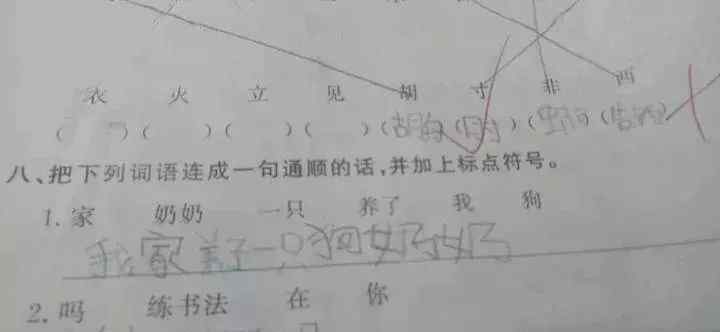 衣 火 立 见 胡 寸 非 西
( )( )( )( )( )( )( )( )
八、把下列词语连成一句通顺的话,并加上标点符号。
1. 家 奶奶 一只 养了 我 狗
我家养了一只狗奶奶
2. 吗 练书法 在 你